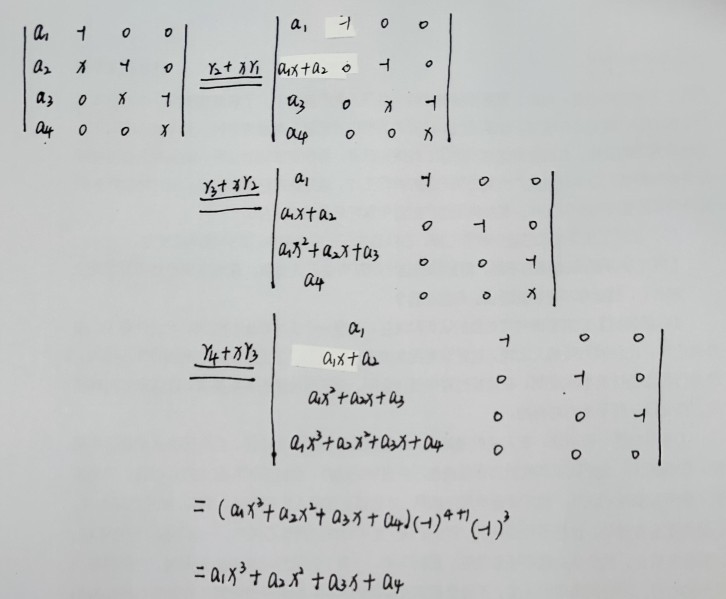 | a₁ -1 0 0 |
| a₂ x -1 0 |
| a₃ 0 x -1 |
| a₄ 0 0 x |
r₂+xr₁
| a₁ -1 0 0 |
| a₁x+a₂ 0 -1 0 |
| a₃ 0 x -1 |
| a₄ 0 0 x |
r₃+xr₂
| a₁ -1 0 0 |
| a₁x+a₂ 0 -1 0 |
| a₁x²+a₂x+a₃ 0 0 -1 |
| a₄ 0 0 x |
r₄+xr₃
| a₁ -1 0 0 |
| a₁x+a₂ 0 -1 0 |
| a₁x²+a₂x+a₃ 0 0 -1 |
| a₁x³+a₂x²+a₃x+a₄ 0 0 0 |
= (a₁x³+a₂x²+a₃x+a₄)(-1)⁴⁺¹(-1)³
= a₁x³+a₂x²+a₃x+a₄